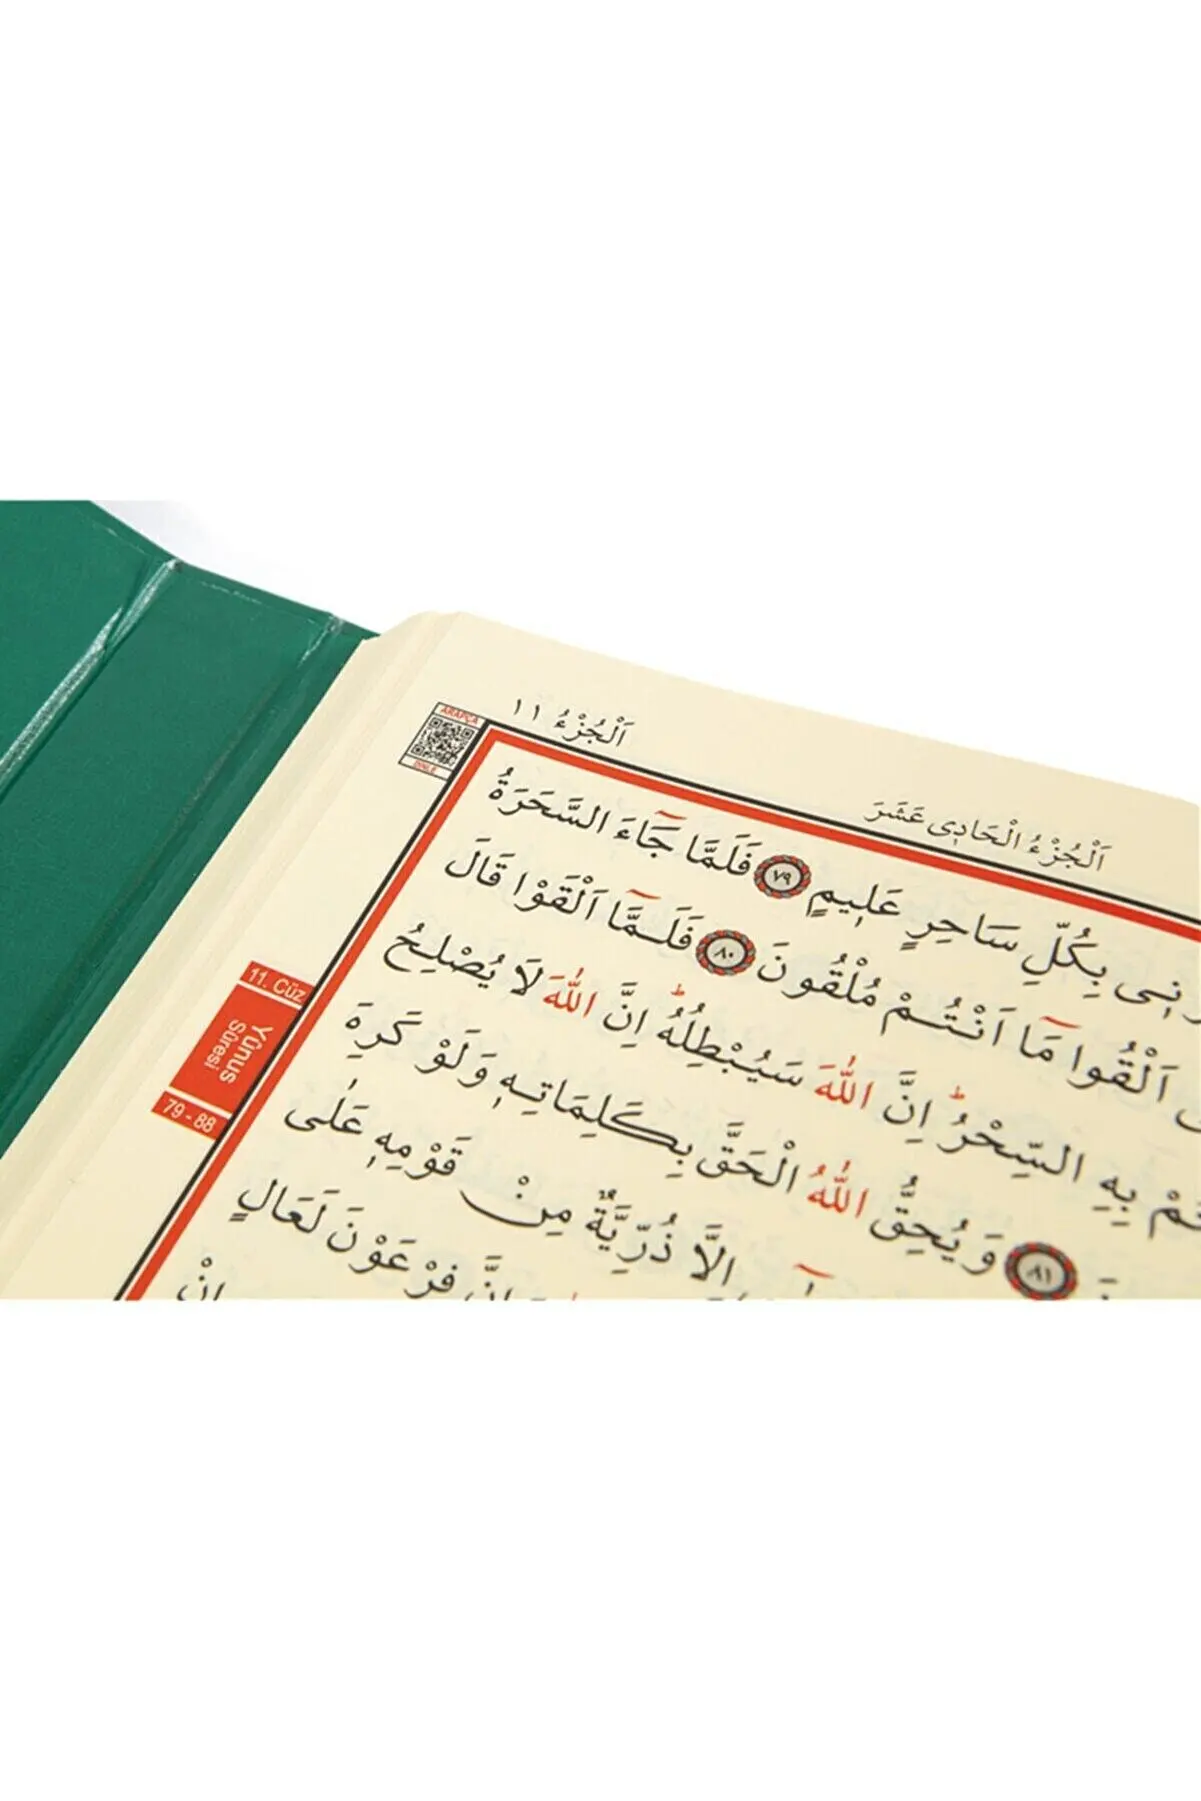 ARAPÇA
DİNLE
اَلْجُزْءُ ١١
اَلْجُزْءُ الْحَادِى عَشَرَ
بِكُلِّ سَاحِرٍ عَلِيمٍ ٧٩ فَلَمَّا جَٓاءَ السَّحَرَةُ
اَلْقُوا مَٓا اَنْتُمْ مُلْقُونَ ٨٠ فَلَمَّٓا اَلْقَوْا قَالَ
بِهِ السِّحْرُۜ اِنَّ اللّٰهَ سَيُبْطِلُهُۜ اِنَّ اللّٰهَ لَا يُصْلِحُ
٨١ وَيُحِقُّ اللّٰهُ الْحَقَّ بِكَلِمَاتِهِ وَلَوْ كَرِهَ
اِلَّا ذُرِّيَّةٌ مِنْ قَوْمِهِ عَلٰى
فِرْعَوْنَ لَعَالٍ
11. Cüz
Yûnus
Sûresi
79 - 88